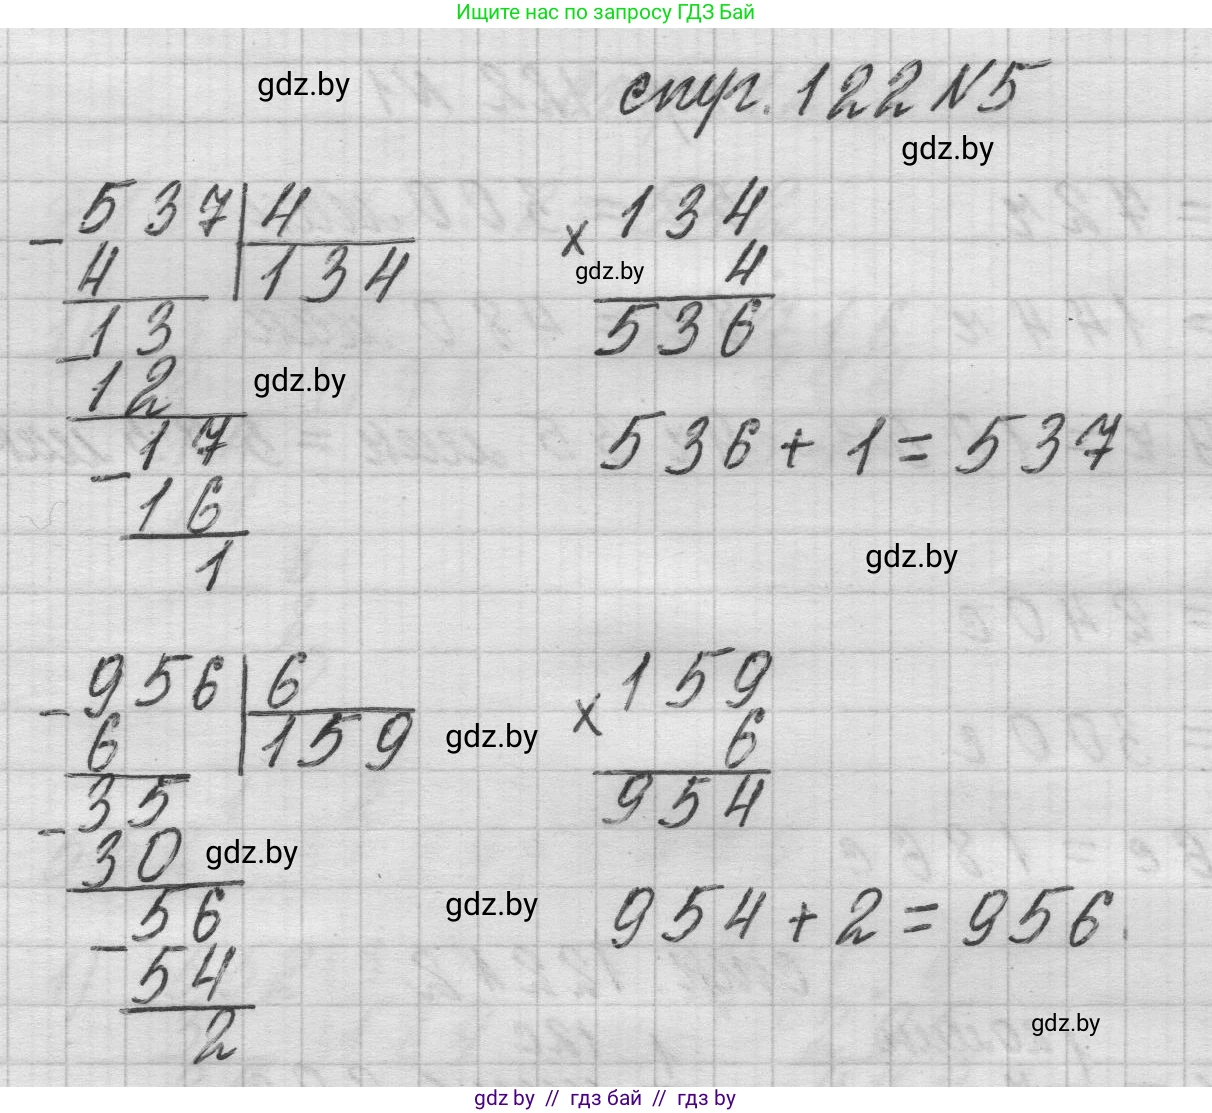 Ищите нас по запросу ГДЗ Бай
gdz.by
стр. 122 №5
gdz.by
- 537 | 4
4 | 134
- 13
12
- 17
16
1
× 134
gdz.by
4
536
gdz.by
536 + 1 = 537
gdz.by
- 956 | 6
6 | 159
- 35
30
- 56
54
2
× 159
6
954
gdz.by
gdz.by
gdz.by
954 + 2 = 956.
gdz.by
gdz by // гдз бай // гдз by